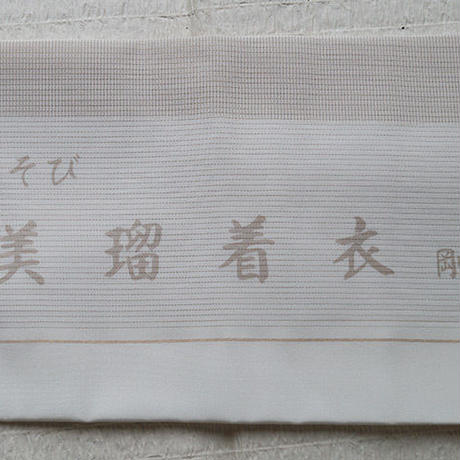 そび
美瑠着衣 岡